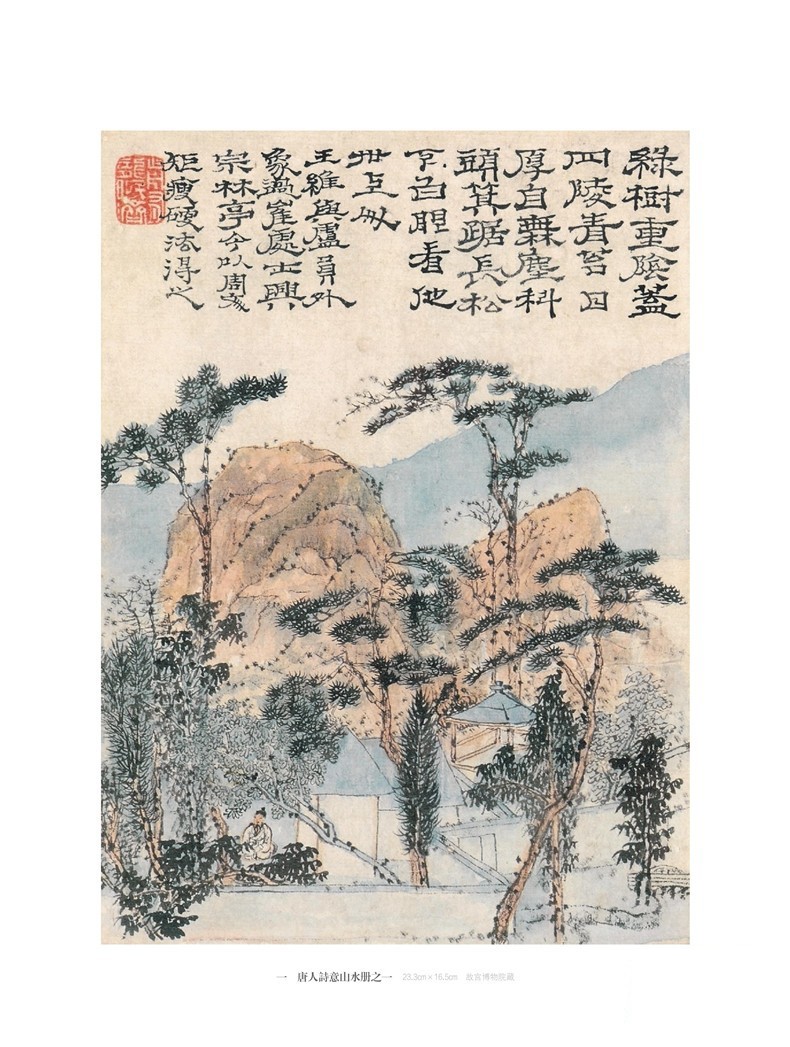 綠樹重陰蓋
四隣青苔日
厚自無塵科
頭箕踞長松
下白眼看他
世上人
王維與盧員外
象過崔處士興
宗林亭今以周文
矩瘦硬法得之
一 唐人詩意山水册之一 23.3cm×16.5cm 故宮博物院藏